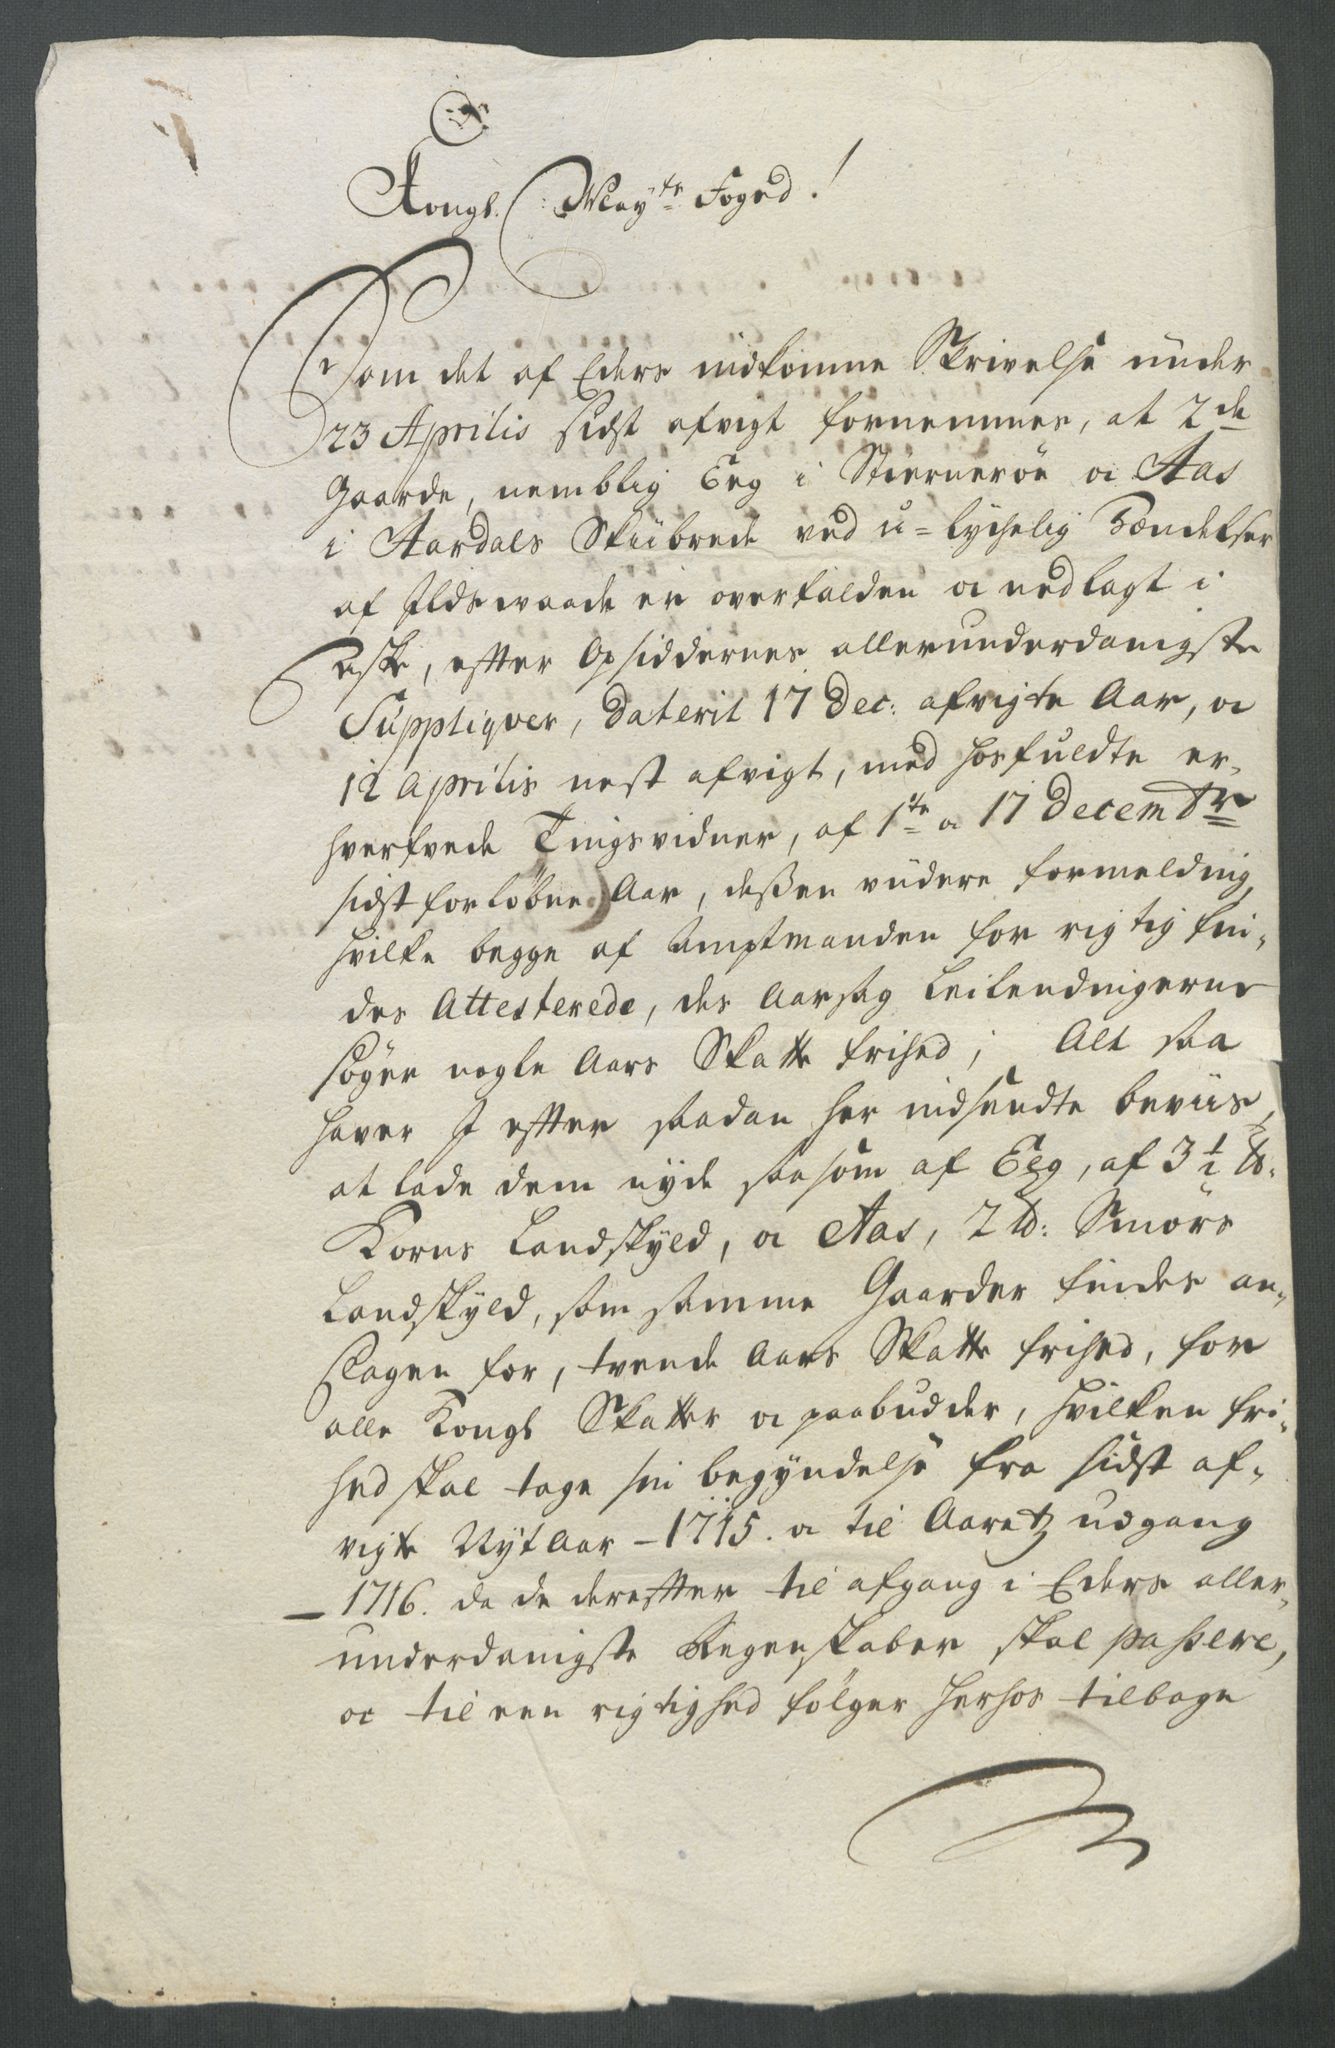 Kongl. Mayts Foged!
Som det af Eders indkomne Skrivelse under
23 Aprilis sidst afvigt fornemmes, at 2de
Gaarde, nemblig Eeg i Stiernerøe oc Aas
i Aardals Skibrede ved u-lychelig hændelser
af Ildswaade er overfalden oc nedlagt i
aske, efter Opsiddernes allerunderdanigste
Suppliqver, daterit 17 Dec: afvigte Aar, oc
12 Aprilis nest afvigt, med hosfuldte er-
hverfvede Tingsvidner, af 1te oc 17 Decembr
sidst forløbne Aar, dessen videre formelding
hvilke begge af Amptmanden for rigtig fin-
des Attesterede, des Aarsag Leilendingerne
søger nogle Aars Skatte frihed; Alt saa
haver I efter saadan her indsendte beviis,
at lade dem nyde saasom af Eeg, af 3 1/2 td.
Korns Landskyld, oc Aas, 2 td: Smørs
Landskyld, som samme Gaarder findes an-
slagen for, tvende Aars Skatte frihed, for
alle Kongl Skatter oc paabudder, hvilken fri-
hed skal tage sin begyndelse fra sidst af-
vigte Nyt Aar - 1715. oc til Aaretz udgang
- 1716. da de derefter til afgang i Eders aller-
underdanigste Regenskaber skal passere,
oc til een rigtighed følger herhos tilbage